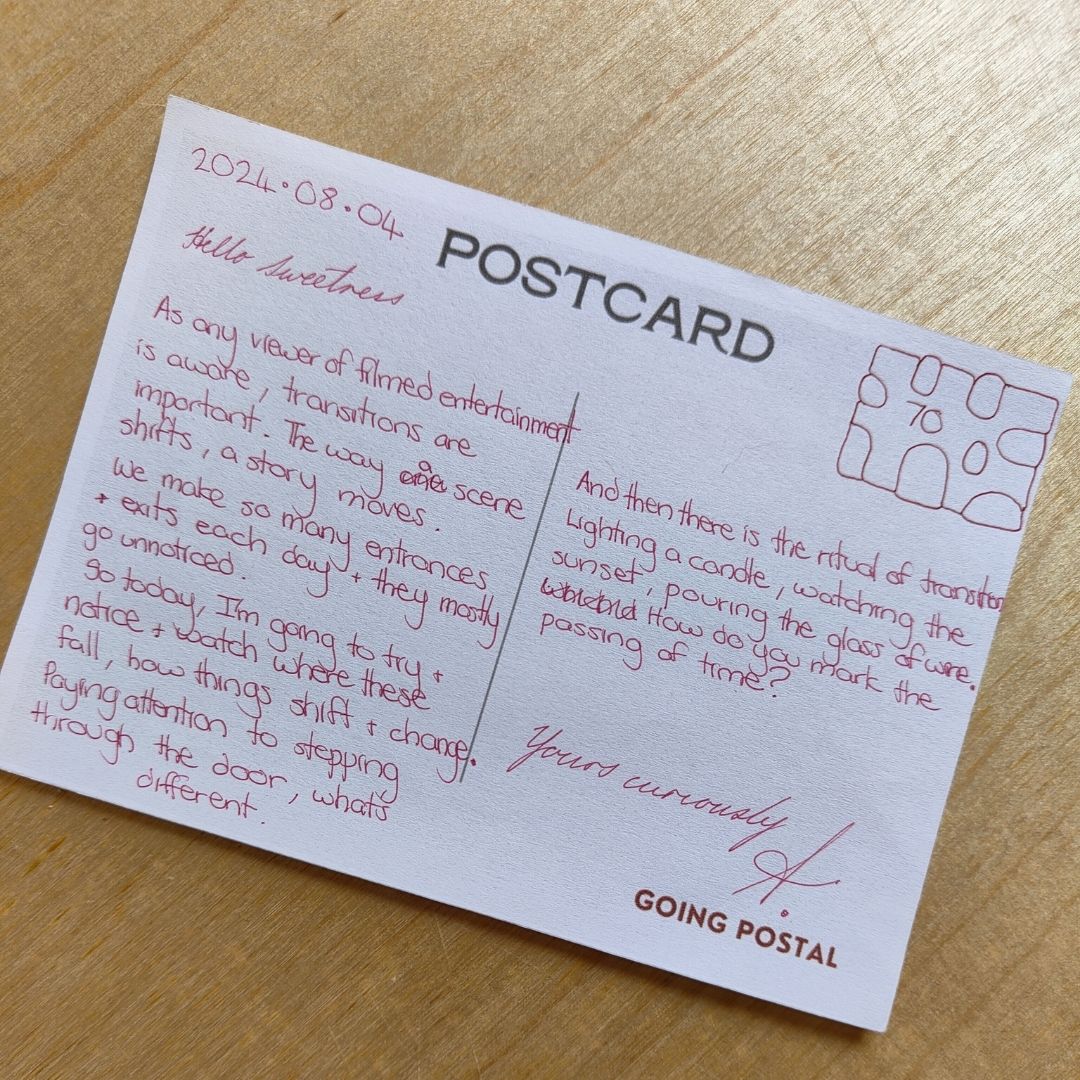 2024.08.04
POSTCARD
Hello Sweetness
As any viewer of filmed entertainment
is aware, transitions are
important. The way a scene
shifts, a story moves.
We make so many entrances
+ exits each day + they mostly
go unnoticed.
So today, I'm going to try +
notice + watch where these
fall, how things shift + change.
Paying attention to stepping
through the door, whats
different.
70
And then there is the ritual of transition
Lighting a candle, watching the
sunset, pouring the glass of wine.
How do you mark the
passing of time?
Yours curiously
A.
GOING POSTAL